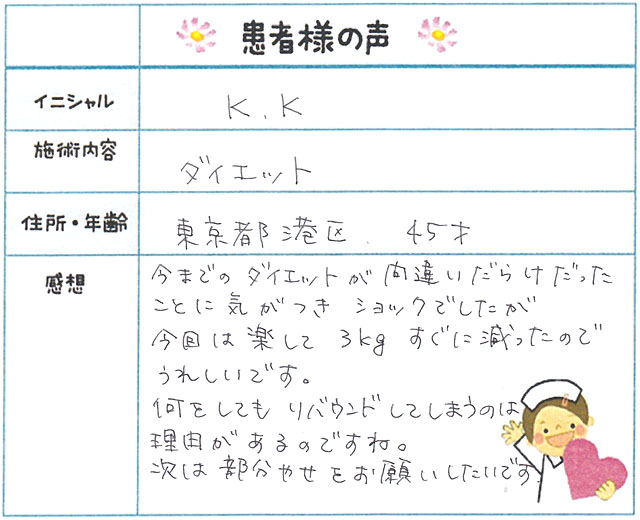 患者様の声
イニシャル
K.K
施術内容
ダイエット
住所・年齢
東京都港区. 45才
感想
今までのダイエットが間違いだらけだった
ことに気がつきショックでしたが
今回は楽して3kgすぐに減ったので
うれしいです。
何をしてもリバウンドしてしまうのは
理由があるのですね。
次は部分やせをお願いしたいです